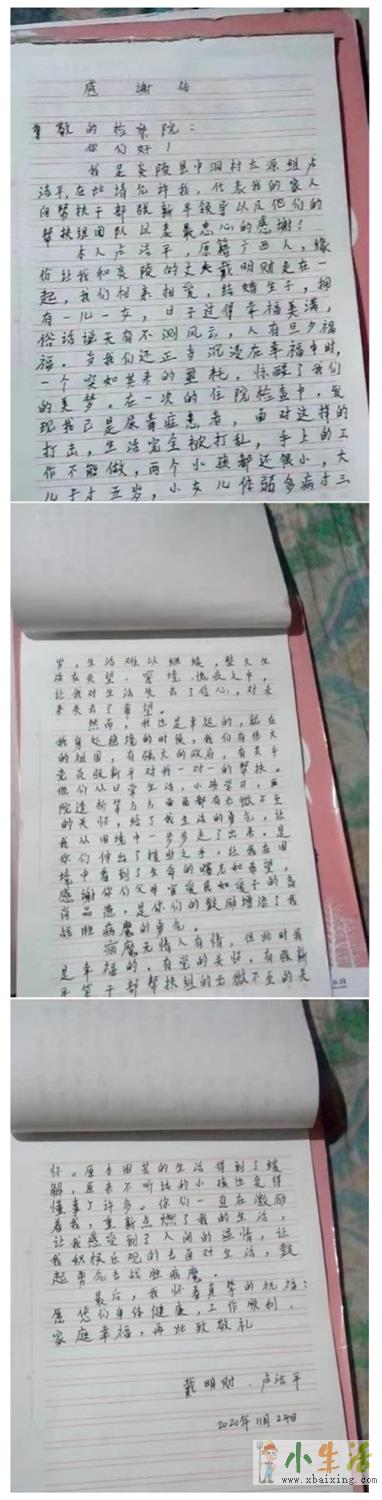 感谢信
尊敬的检察院：
你们好！
我是炎陵县中洞村太源组卢
洁平，在此请允许我，代表我的家人
向帮扶干部张新平领导以及他们的
帮扶组团队致最忠心的感谢！
本人卢洁平，原籍广西人，缘
份让我和炎陵的丈夫戴明财走在一
起，我们相亲相爱，结婚生子，拥
有一儿一女，日子过得幸福美满，
俗话说天有不测风云，人有旦夕祸
福。当我们还正当沉浸在幸福中时，
一个突如其来的噩耗，惊醒了我们
的美梦。在一次的住院检查中，发
现我已是尿毒症患者，面对这样的
打击，生活完全被打乱，手上的工
作不能做，两个小孩都还很小，大
儿子才五岁，小女儿体弱多病才三
岁，生活难以继续，整天生
活在失望、窘境、愧疚之中，
让我对生活失去了信心，对未
来失去了希望。
然而，我也是幸运的，就在
我身处绝境的时候，我们有伟大
的祖国，有强大的政府，有关平
党员张新平对我一对一的帮扶。
他们从日常生活，小孩学习，医
院透析等方方面面都有无微不至
的关怀，给了我生活的勇气，让
我从困境中一步步走了出来。是
你们伸出了援助之手，让我在困
境中看到了生命的曙光和希望，
感谢你们父母官爱民如爱子的高
尚品德。是你们的鼓励增添了我
战胜病魔的勇气。
病魔无情人有情，但此时我
是幸福的，有党的关怀，有张新
平等干部帮扶组的无微不至的关
怀。原本困苦的生活得到了缓
解，原来不听话的小孩也变得
懂事了许多。你们一直在激励
着我，重新点燃了我的生活，
让我感受到了人间的温情，让
我积极乐观的去面对生活，鼓
起勇气去战胜病魔。
最后，我怀着真挚的祝福：
愿您们身体健康，工作顺利，
家庭幸福，再此致敬礼
戴明财、卢洁平
2020年11月24日
小生活
www.xbaixing.com